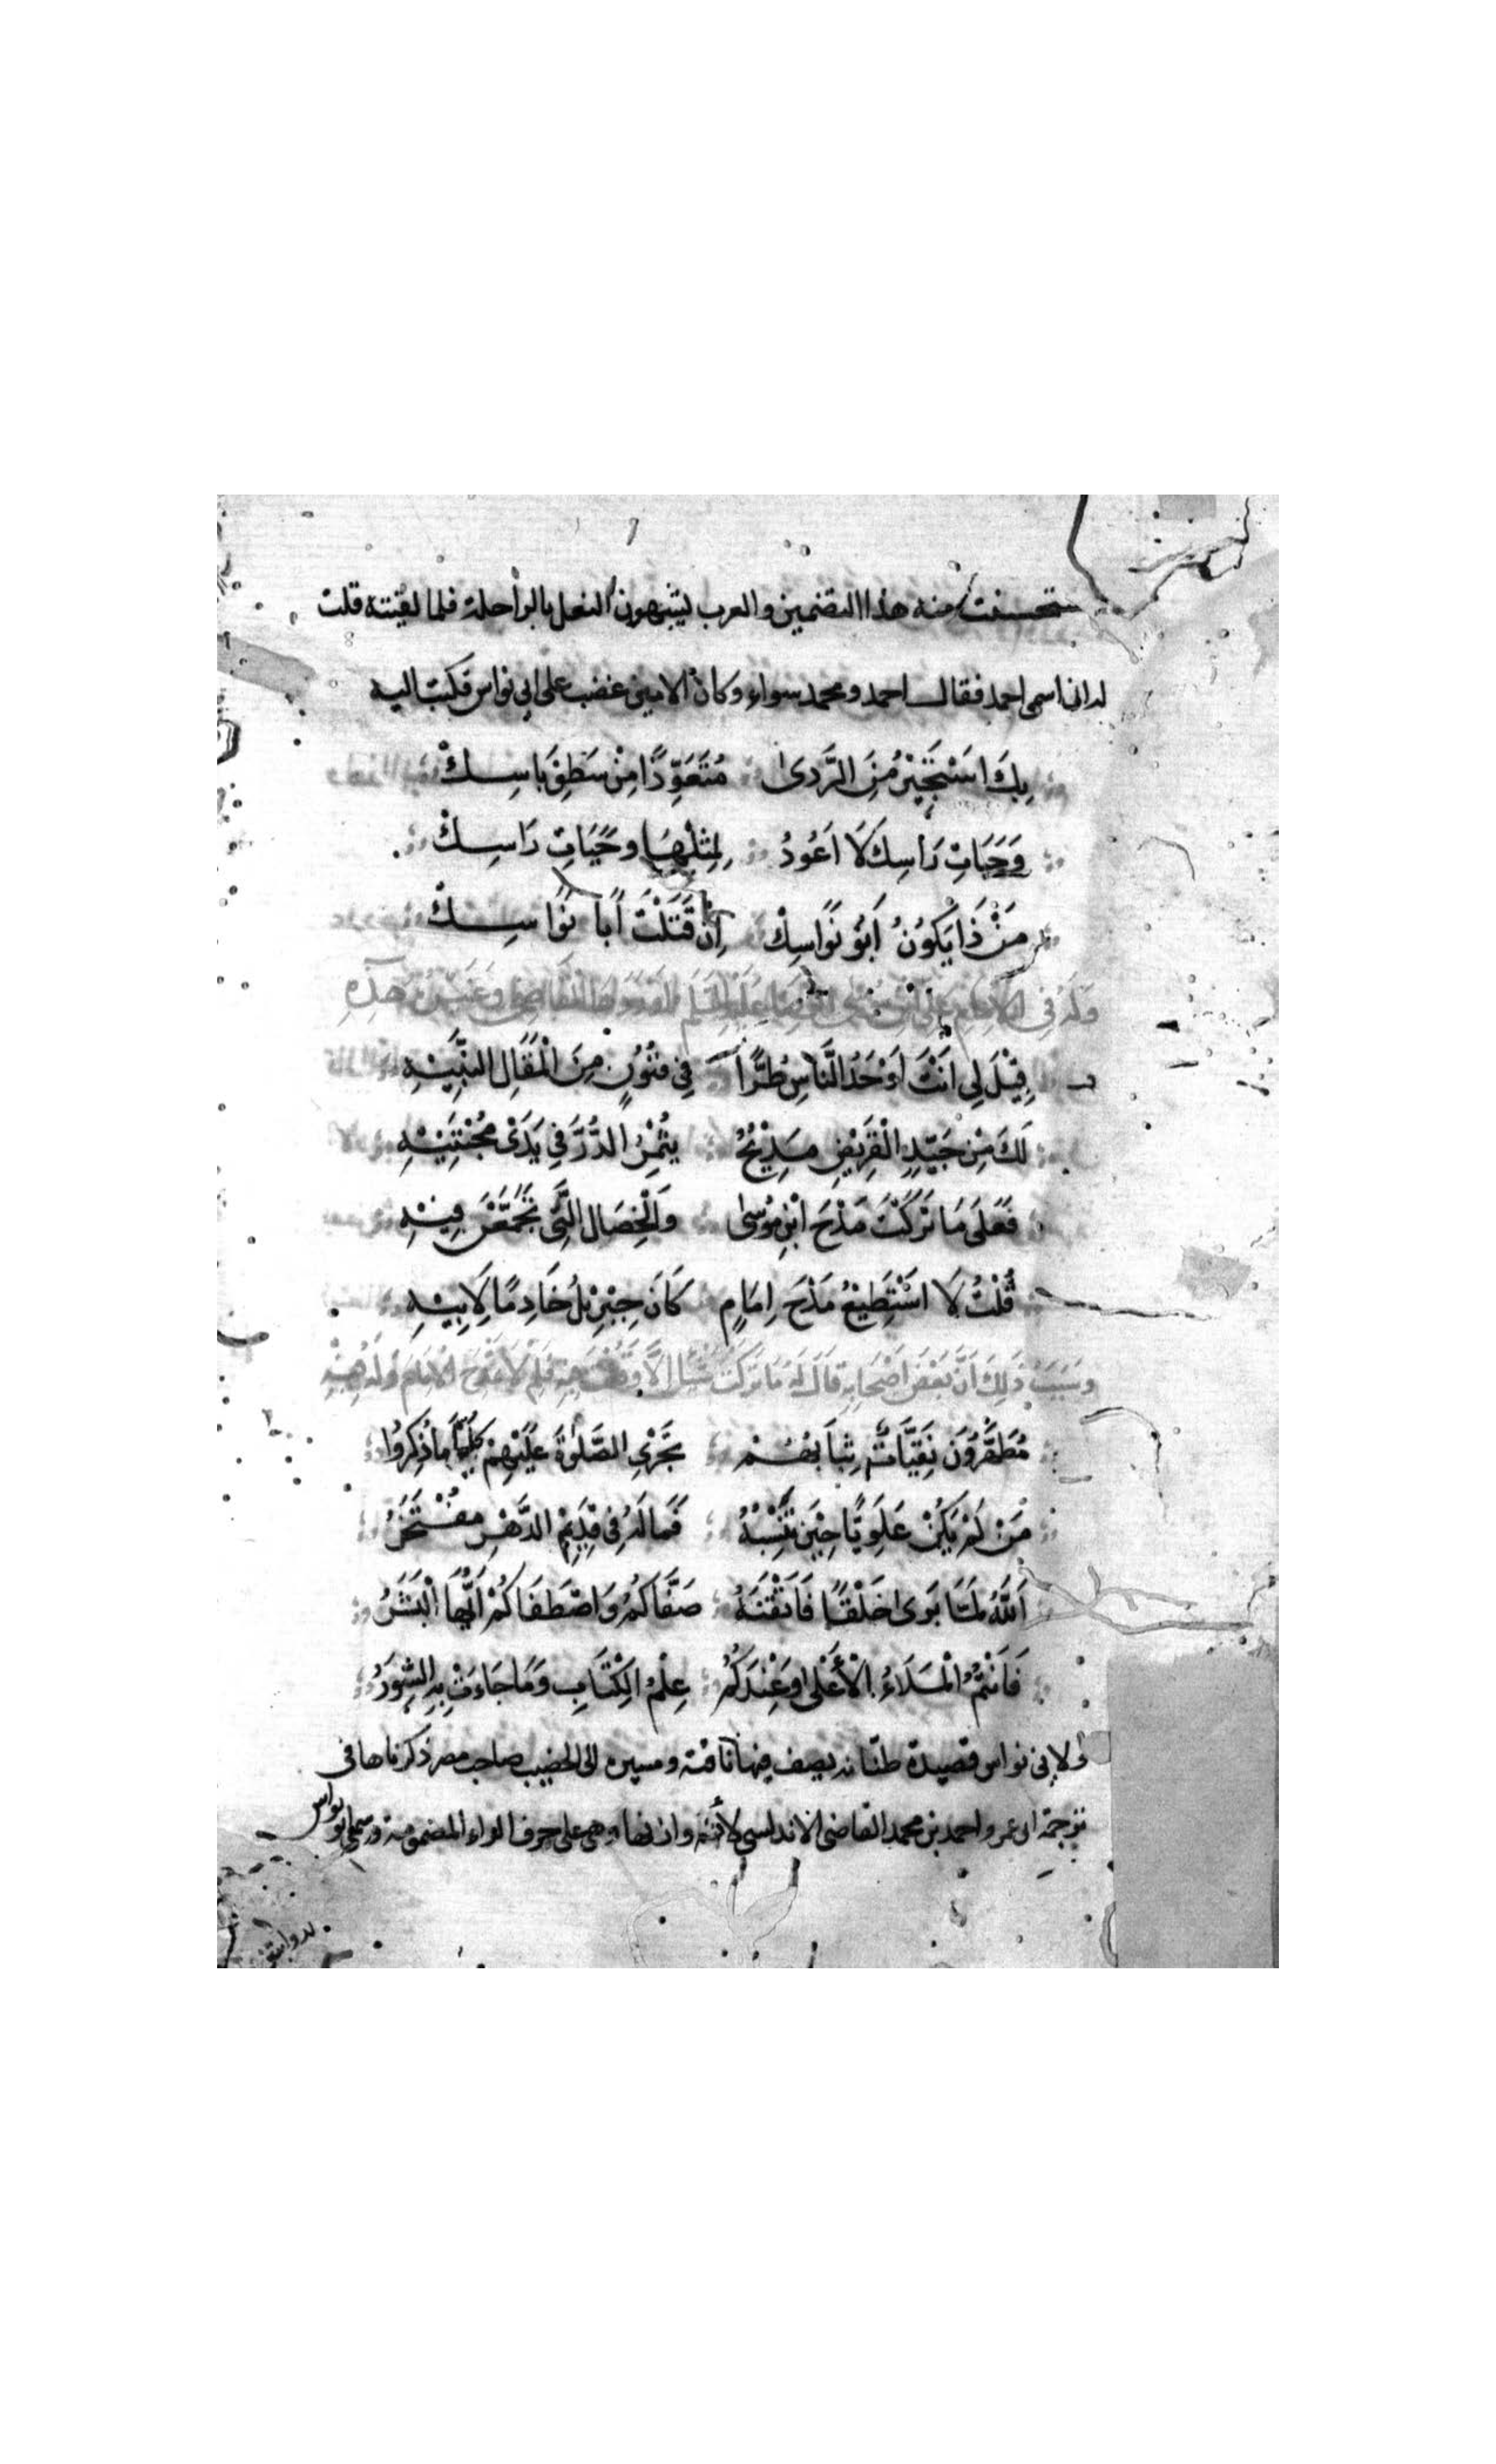 ستحسنت منه هذا التضمين والعرب يشبهون النعل بالراحلة فلما لقيته قلت
له ان اسمى احمد فقال احمد ومحمد سواء وكان الامين غضب على ابى نواس فكتب اليه
بِكَ اَسْتَجِيْرُ مِنَ الرَّدىٰ مُتَعَوِّذًا مِنْ سَطْوِ بَاسِكْ
وَحَيَاتِ رَاسِكَ لَا اَعُوْدُ لِمِثْلِهَا وَحَيَاتِ رَاسِكْ
مَنْ ذَا يَكُوْنُ اَبُو نُوَاسِكْ اِنْ قَتَلْتَ اَبَا نُوَاسِكْ
وَلَهُ فِى الْاِمَامِ عَلِى ابْنِ مُوْسَى الرِّضَا عَلَيْهِ السَّلَمُ
قِيْلَ لِى اَنْتَ اَوْحَدُ النَّاسِ طُرًّا فِى فُنُوْنٍ مِنَ الْمَقَالِ النَّبِيْهِ
لَكَ مِنْ جَيِّدِ الْقَرِيْضِ مَدِيْحٌ يُثْمِرُ الدُّرَّ فِى يَدَىْ مُجْتَنِيْهِ
فَعَلَى مَا تَرَكْتَ مَدْحَ ابْنِ مُوْسٰى وَالْخِصَالِ الَّتِى تَجَمَّعْنَ فِيْهِ
قُلْتُ لَا اَسْتَطِيْعُ مَدْحَ اِمَامٍ كَانَ جِبْرِيْلُ خَادِمًا لِاَبِيْهِ
وَسَبَبُ ذٰلِكَ اَنَّ بَعْضَ اَصْحَابِهِ قَالَ لَهُ مَا تَرَكْتَ شَيْئًا اِلَّا
مُطَهَّرُوْنَ نَقِيَّاتٌ ثِيَابُهُمْ تَجْرِى الصَّلٰوةُ عَلَيْهِمْ كُلَّمَا ذُكِرُوا
مَنْ لَمْ يَكُنْ عَلَوِيًّا حِيْنَ تَنْسِبُهُ فَمَا لَهُ فِى قَدِيْمِ الدَّهْرِ مُفْتَخَرُ
اَللّٰهُ لَمَّا بَرَىٰ خَلْقًا فَاَتْقَنَهُ صَفَّاكُمُ وَاصْطَفَاكُمْ اَيُّهَا الْبَشَرُ
فَاَنْتُمُ الْمَلَاءُ الْاَعْلٰى وَعِنْدَكُمُ عِلْمُ الْكِتَابِ وَمَا جَاءَتْ بِهِ السُّوَرُ
ولابى نواس قصيدة طنانه يصف فيها ناقته ومسيره الى الخصيب صاحب مصر ذكرناها فى
ترجمة ابى عمرو احمد بن محمد القاضى الاندلسى لأنه وازنها وهى على حرف الراء المضمومة وسمى ابو نواس